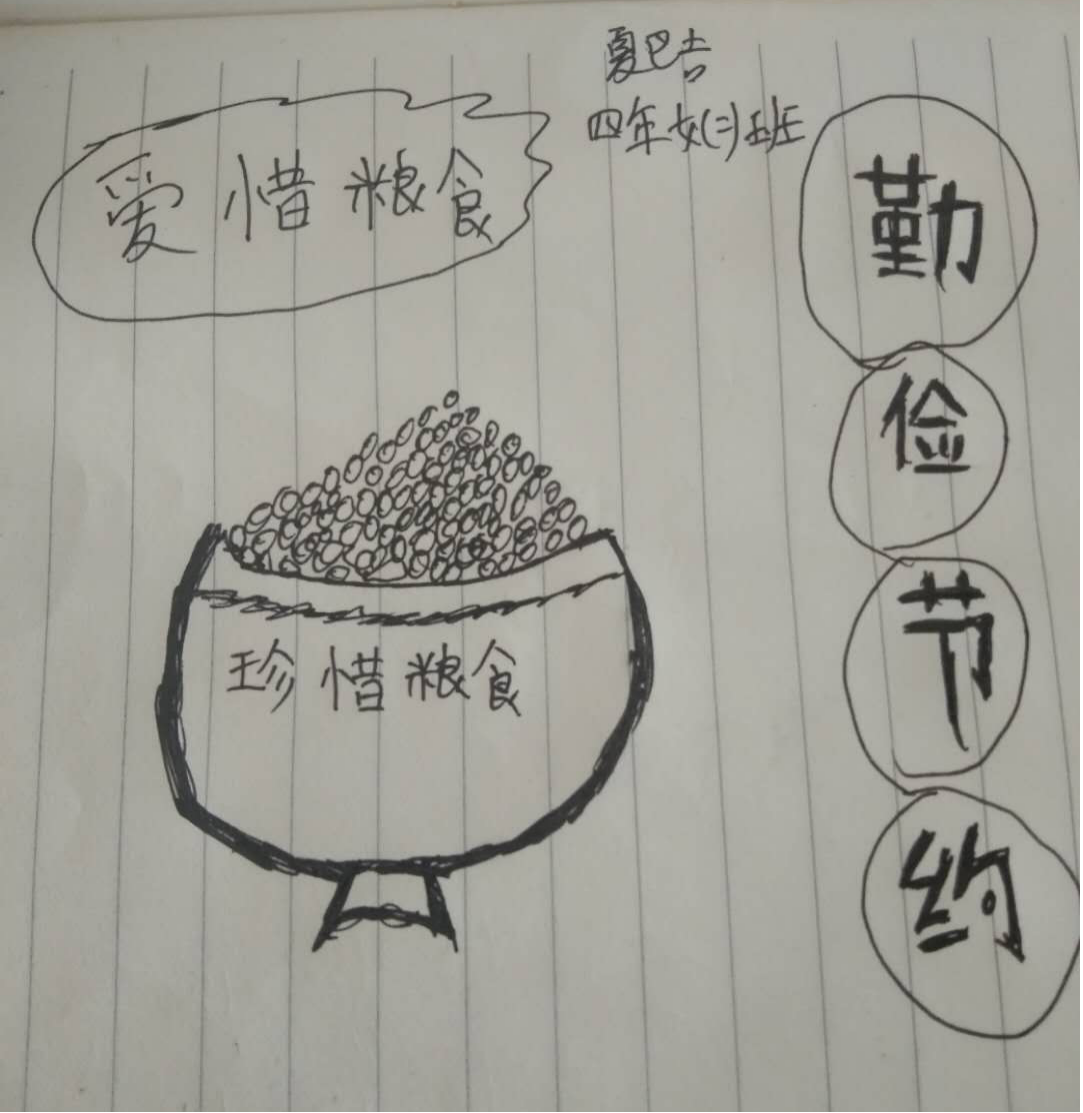 夏巴吉
四年级(二)班
爱惜粮食
珍惜粮食
勤
俭
节
约